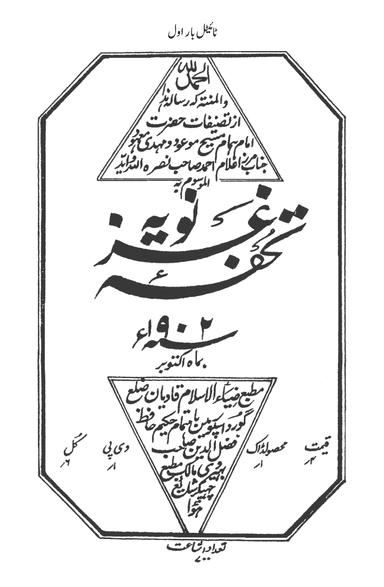 ٹائیٹل بار اول
الحمد للہ
والمنتہ کہ رسالہ ہٰذا
از تصنیفات حضرت
امام ہمام مسیح موعود و مہدی معہود
جناب مرزا غلام احمد صاحب نصرہ اللہ وایدہ
الموسوم بہ
تحفہ غزنویہ
سنہ ۱۹۰۲ء
بماہ اکتوبر
مطبع ضیاء الاسلام قادیان ضلع
گورداسپور میں باہتمام حکیم حافظ
فضل الدین صاحب
بھیروی مالک مطبع
چھپکر شایع
ہوا
قیمت ۴؍ محصولڈاک ۱؍ وی پی ۱؍ کل ۶؍
تعداد اشاعت ۷۰۰